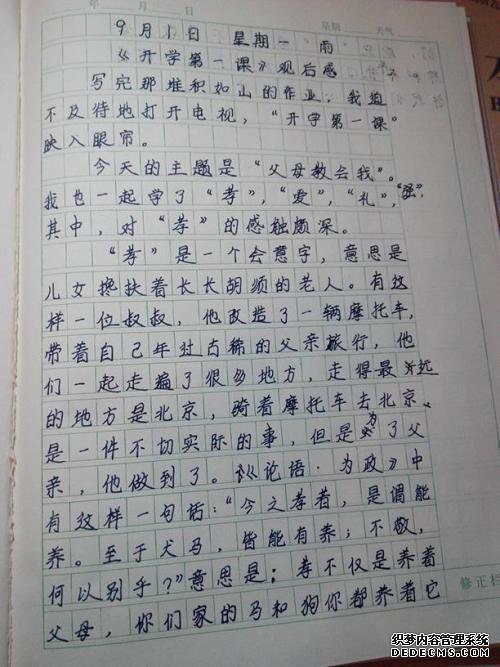 年 月 日 星期 天气
9月1日 星期一 雨
《开学第一课》观后感
写完那堆积如山的作业,我迫
不及待地打开电视,“开学第一课”
映入眼帘。
今天的主题是“父母教会我”。
我也一起学了“孝”,“爱”,“礼”,“强”,
其中,对“孝”的感触颇深。
“孝”是一个会意字,意思是
儿女搀扶着长长胡须的老人。有这
样一位叔叔,他改造了一辆摩托车,
带着自己年过古稀的父亲旅行,他
们一起走遍了很多地方,走得最远
的地方是北京,骑着摩托车去北京
是一件不切实际的事,但是为了父
亲,他做到了。《论语·为政》中
有这样一句话:“今之孝者,是谓能
养。至于犬马,皆能有养;不敬,
何以别乎?”意思是:孝不仅是养着
父母,你们家的马和狗你都养着它
修正栏
织梦内容管理系统
DEDECMS.COM